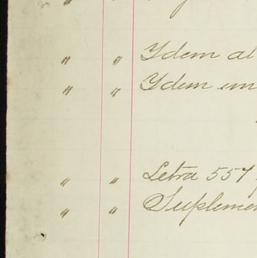 " " Ydem al
" " Ydem en
" " Letra 557
" " Suplemen